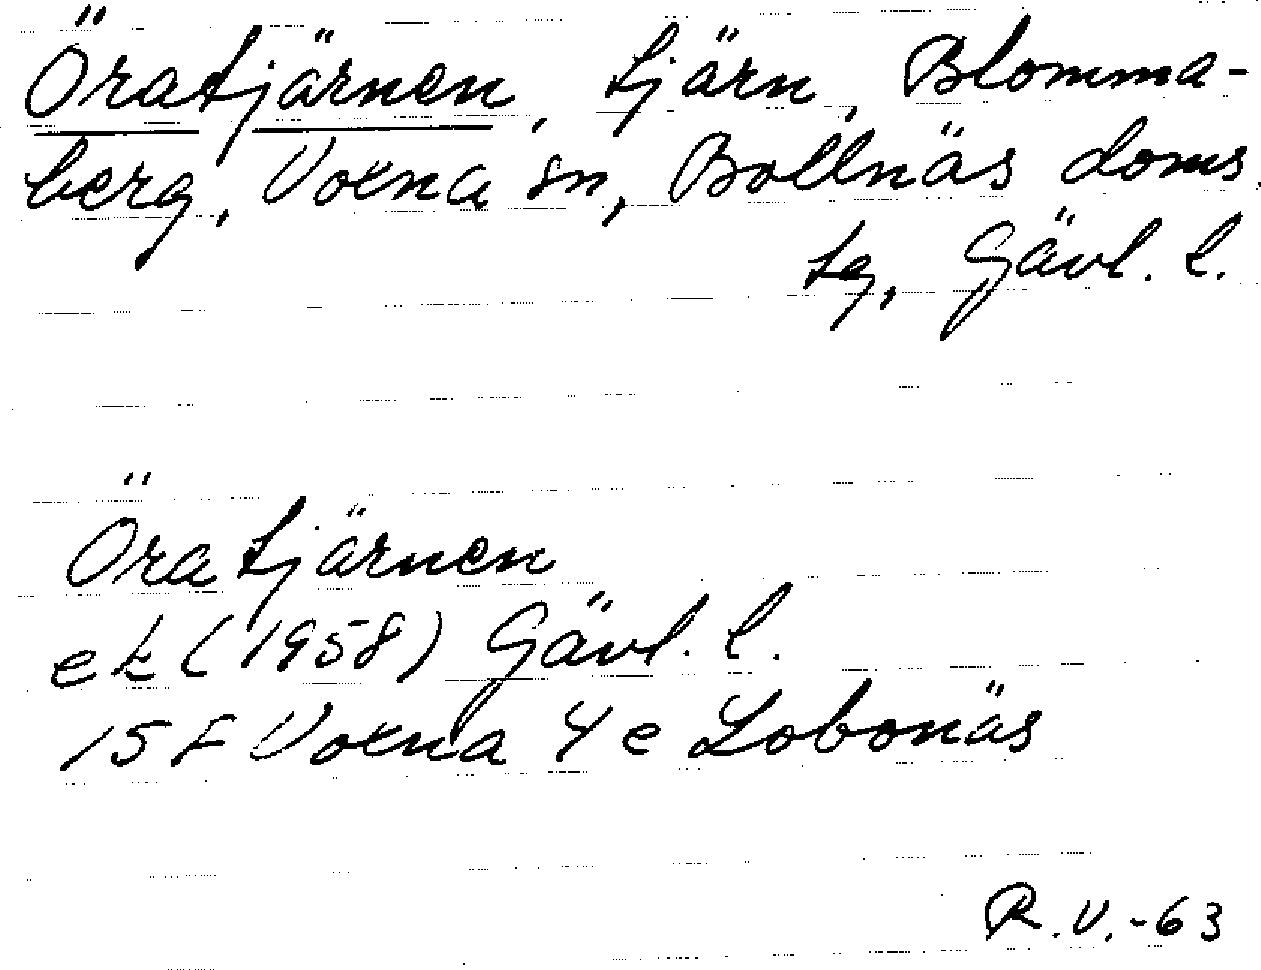 Öratjärnen, tjärn, Blomma-
berg, Voxna sn, Bollnäs doms.
tg, Gävl. l.
Öratjärnen
ek (1958) Gävl. l.
15 F Voxna 4 e Lobonäs
R.V.-63